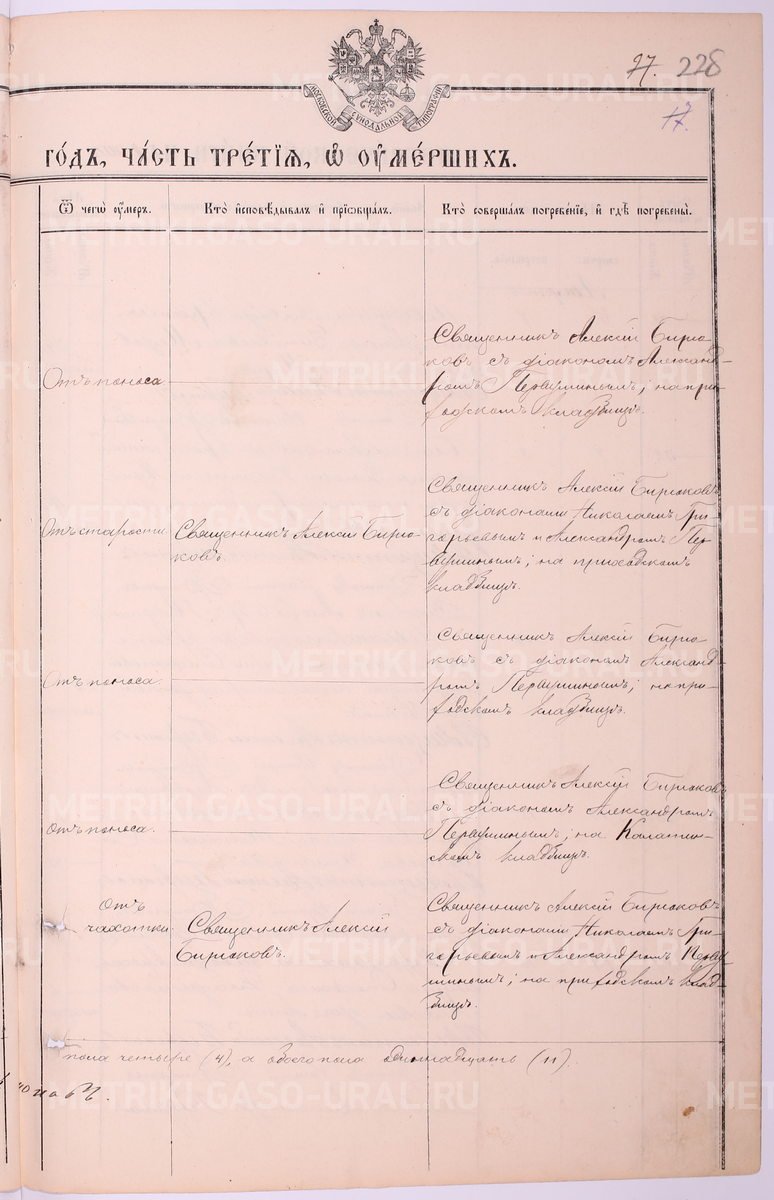 МОСКОВСКОЙ СѴНОДАЛЬНОЙ ТИПОГРАФІИ
27. 228
17.
ГО́ДЪ, ЧА́СТЬ ТРЕ́ТІѦ, Ѡ ОУМЕ́РШИХЪ.
Ѿ чегѡ̀ оу҆́меръ.
Кто̀ и҆сповѣ́дывалъ и҆ прїѡбща́лъ.
Кто̀ соверша́лъ погребе́нїе, и҆ гдѣ̀ погребены̀.
Отъ поноса.
Священникъ Алексій Бирю-
ковъ съ діакономъ Александ-
ромъ Первушинымъ; на при-
ходскомъ кладбищѣ.
Отъ старости.
Священникъ Алексій Бирю-
ковъ.
Священникъ Алексій Бирюковъ
съ діаконами Николаемъ Гри-
горьевымъ и Александромъ Пер-
вушинымъ; на приходскомъ
кладбищѣ.
Отъ поноса.
Священникъ Алексій Бирю-
ковъ съ діакономъ Александ-
ромъ Первушинымъ; на при-
ходскомъ кладбищѣ.
Отъ поноса.
Священникъ Алексій Бирюковъ
съ діакономъ Александромъ
Первушинымъ; на
кладбищѣ.
Отъ
чахотки.
Священникъ Алексій
Бирюковъ.
Священникъ Алексій Бирюковъ
съ діаконами Николаемъ Гри-
горьевымъ и Александромъ Перву-
шинымъ; на приходскомъ клад-
бищѣ.
пола четыре (4), а обоего пола одиннадцать (11).
METRIKI.GASO-URAL.RU